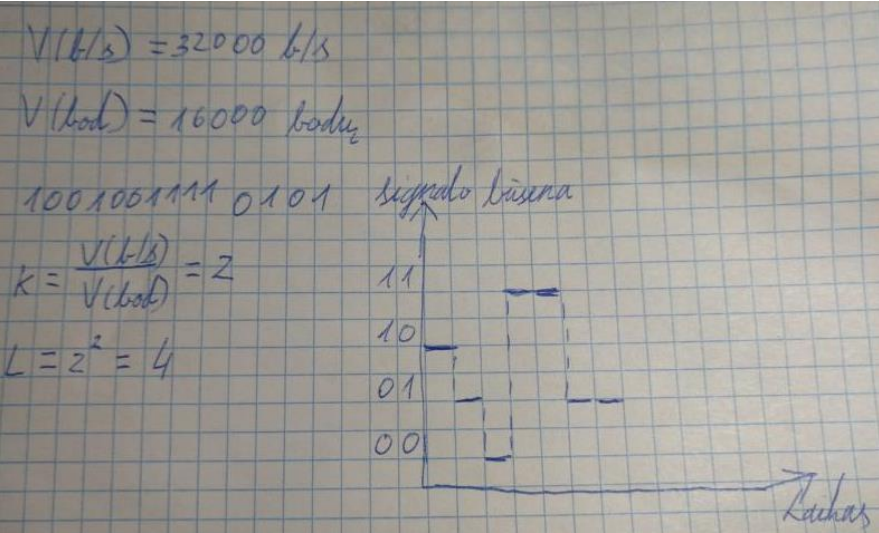 V(b/s) = 32000 b/s
V(bod) = 16000 bodų
1001001111 0101
K = V(b/s) / V(bod) = 2
L = 2² = 4
signalo būsena
11
10
01
00
Laikas